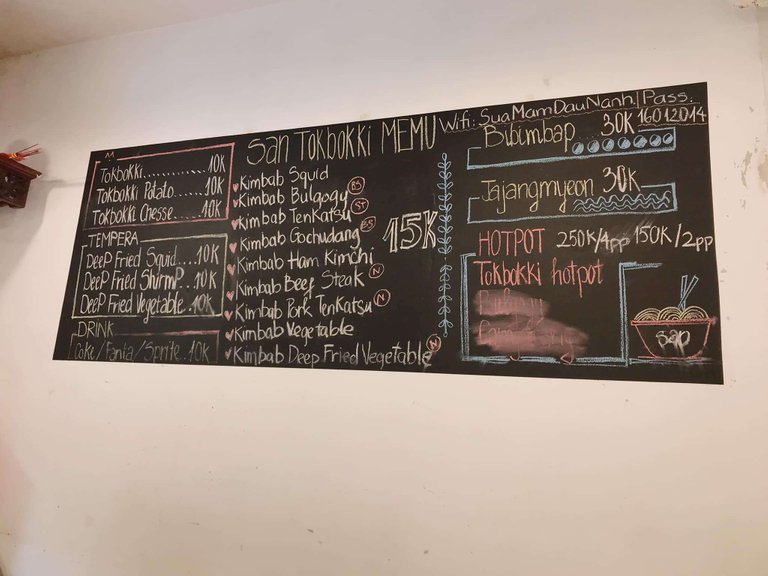 San TOKBOKKI MEMU
Wifi: SuaMamDauNanh. | Pass:
16012014
TOKBOKKI............ 10K
TOKBOKKI Potato ..... 10K
TOKBOKKI Chesse ...... 10K
TEMPERA
DEEP Fried Squid.... 10K
DEEP Fried ShirmP... 10K
DEEP Fried Vegetable. 10K
DRINK
Coke / Fanta / Sprite. 10K
Kimbab Squid
Kimbab Bulgogy BS
Kimbab Tenkatsu ST
Kimbab Gochudang BS
Kimbab Ham Kimchi
Kimbab Beef Steak N
Kimbab Pork Tenkatsu N
Kimbab Vegetable
Kimbab Deep Fried Vegetable N
15K
Bibimbap 30K
Jajangmyeon 30K
HOTPOT 250K/4pp 150K/2pp
Tokbokki hotpot
sap